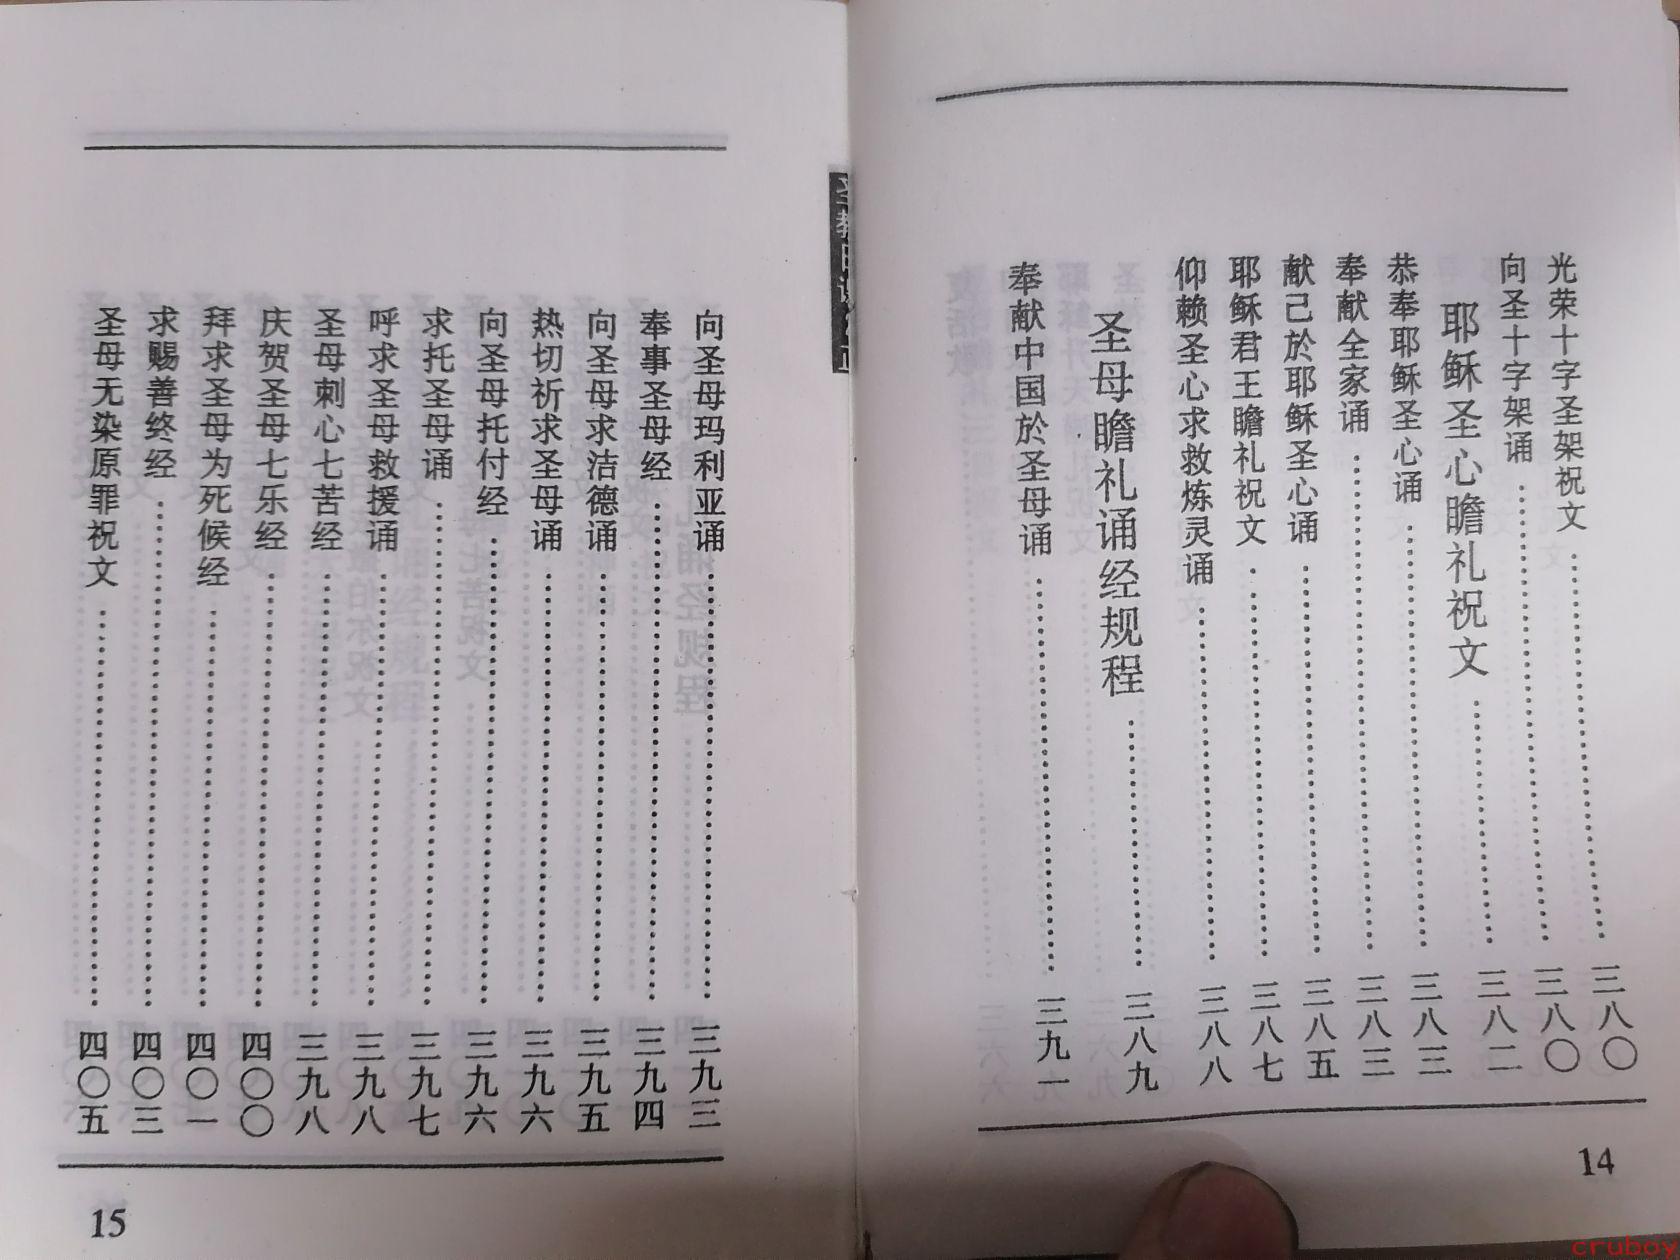 光荣十字圣架祝文……三八〇
向圣十字架诵……三八〇
耶稣圣心瞻礼祝文……三八二
恭奉耶稣圣心诵……三八三
奉献全家诵……三八三
献己於耶稣圣心诵……三八五
耶稣君王瞻礼祝文……三八七
仰赖圣心求救炼灵诵……三八八
圣母瞻礼诵经规程……三八九
奉献中国於圣母诵……三九一
14
向圣母玛利亚诵……三九三
奉事圣母经……三九四
向圣母求洁德诵……三九五
热切祈求圣母诵……三九六
向圣母托付经……三九六
求托圣母诵……三九七
呼求圣母救援诵……三九八
圣母刺心七苦经……三九八
庆贺圣母七乐经……四〇〇
拜求圣母为死候经……四〇一
求赐善终经……四〇三
圣母无染原罪祝文……四〇五
15
cruboy